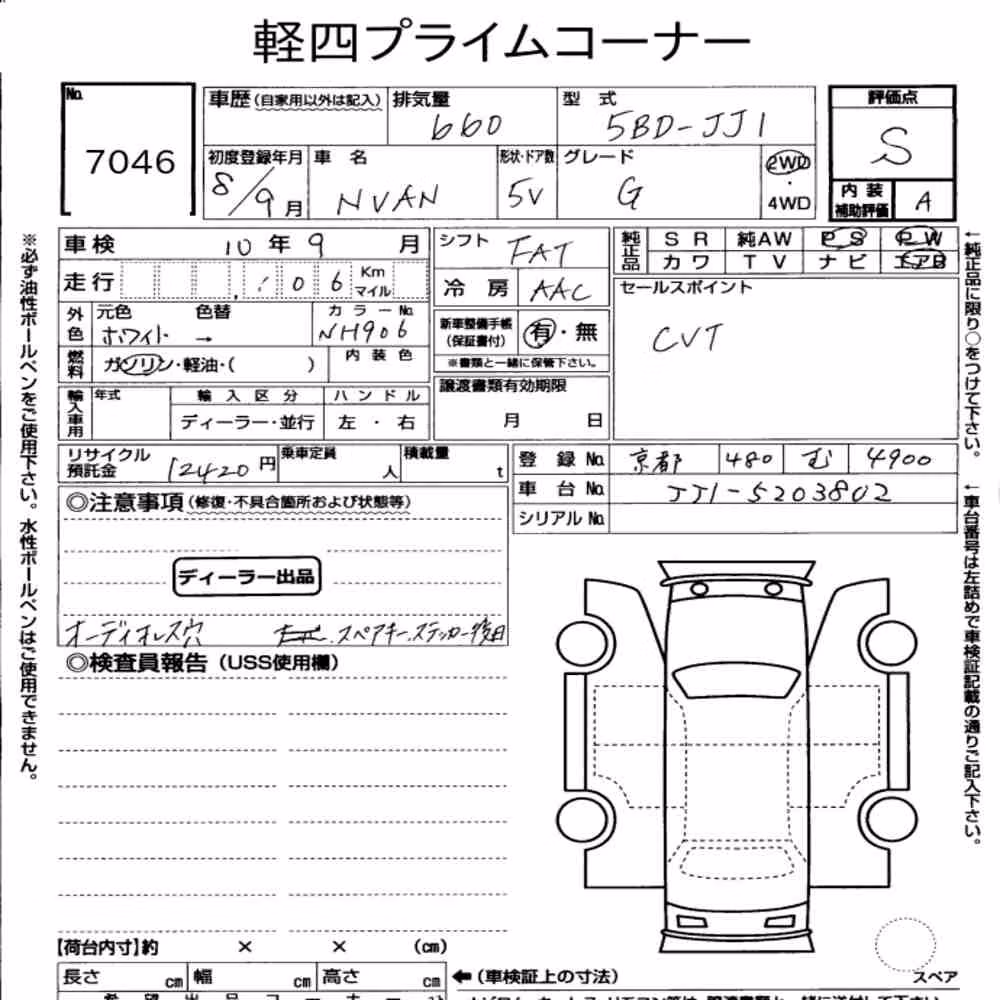 軽四プライムコーナー
No.
7046
車歴(自家用以外は記入)
排気量
660
型 式
5BD-JJ1
初度登録年月
8/9月
車 名
NVAN
形状・ドア数
5V
グレード
G
2WD
・
4WD
評価点
S
内 装
補助評価
A
車検
10年9月
走行
106
Km
マイル
外色
元色
ホワイト
色替
→
カラーNo.
NH906
燃料
ガソリン・軽油・( )
内 装 色
輸入車用
年式
輸 入 区 分
ディーラー・並行
ハ ン ド ル
左 ・ 右
シフト
FAT
冷 房
AAC
新車整備手帳
(保証書付)
有・無
※書類と一緒に保管下さい。
譲渡書類有効期限
月 日
純正品
S R 純AW P S P W
カ ワ T V ナ ビ エアB
セールスポイント
CVT
リサイクル
預託金
12420円
乗車定員
人
積載量
t
登 録 No.
京都 480 む 4900
車 台 No.
JJ1-5203802
シリアル No.
◎注意事項(修復・不具合箇所および状態等)
ディーラー出品
オーディオレス穴
スペアキー.ステッカー後日
◎検査員報告(USS使用欄)
【荷台内寸】約 × × (cm)
長さ cm 幅 cm 高さ cm
←(車検証上の寸法)
スペア
※必ず油性ボールペンをご使用下さい。水性ボールペンはご使用できません。
←純正品に限り○をつけて下さい。
←車台番号は左詰めで車検証記載の通りご記入下さい。